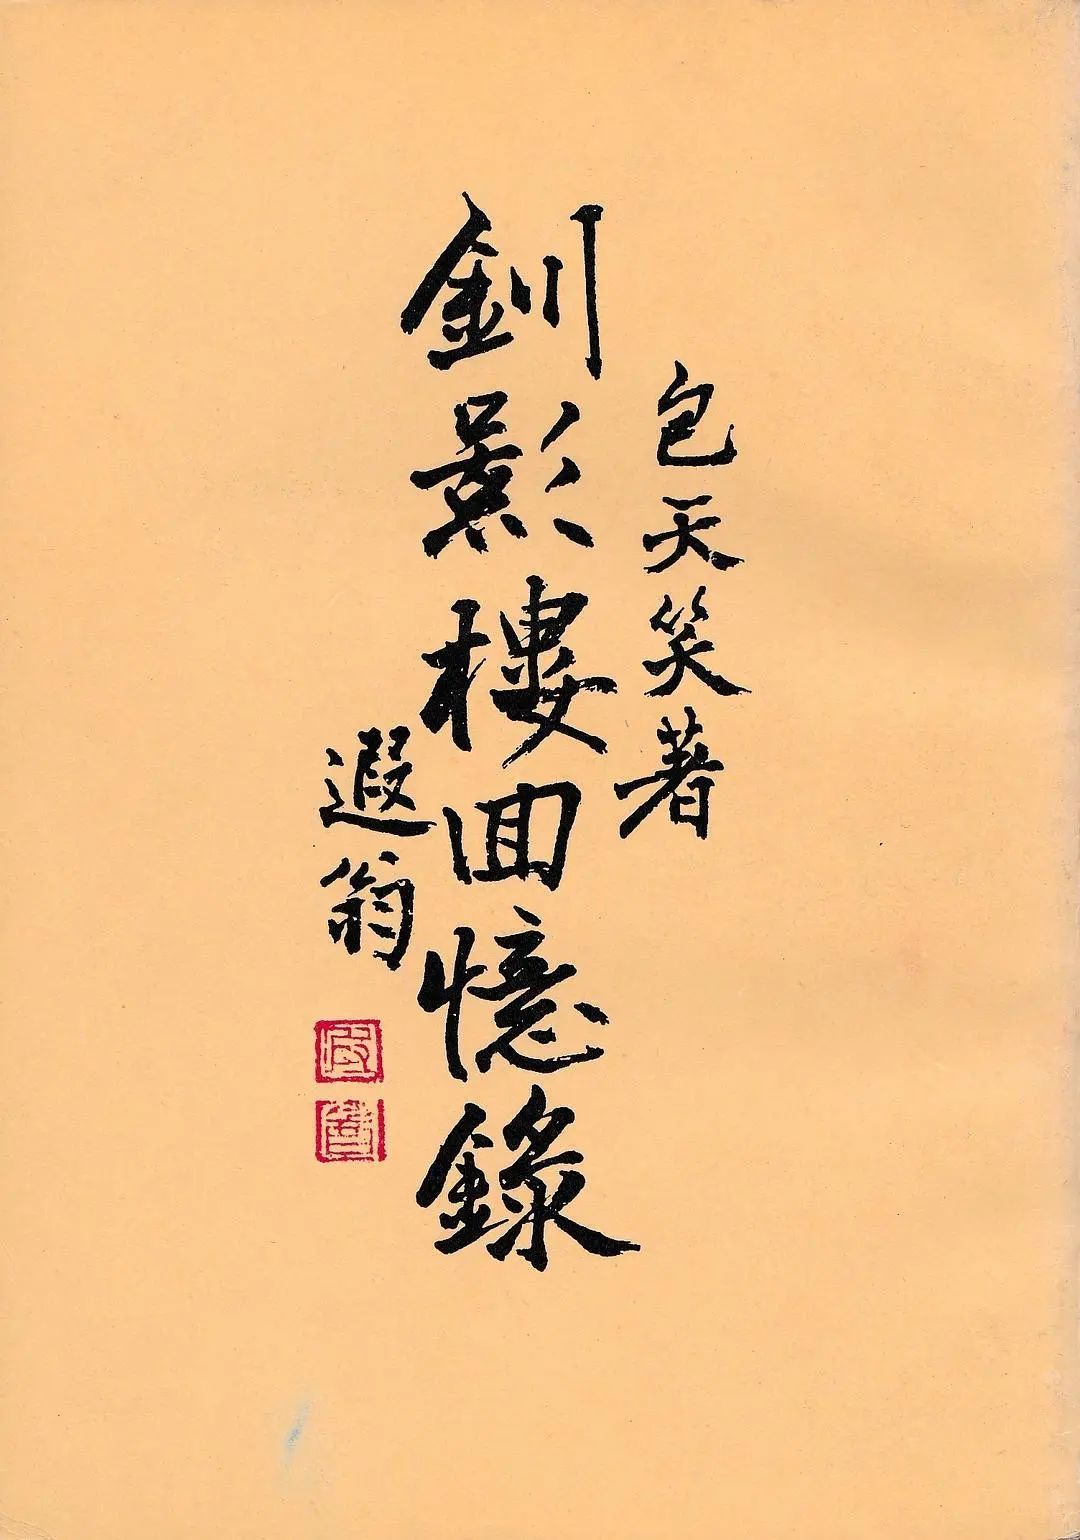 包天笑著
釧影樓回憶錄
遐翁